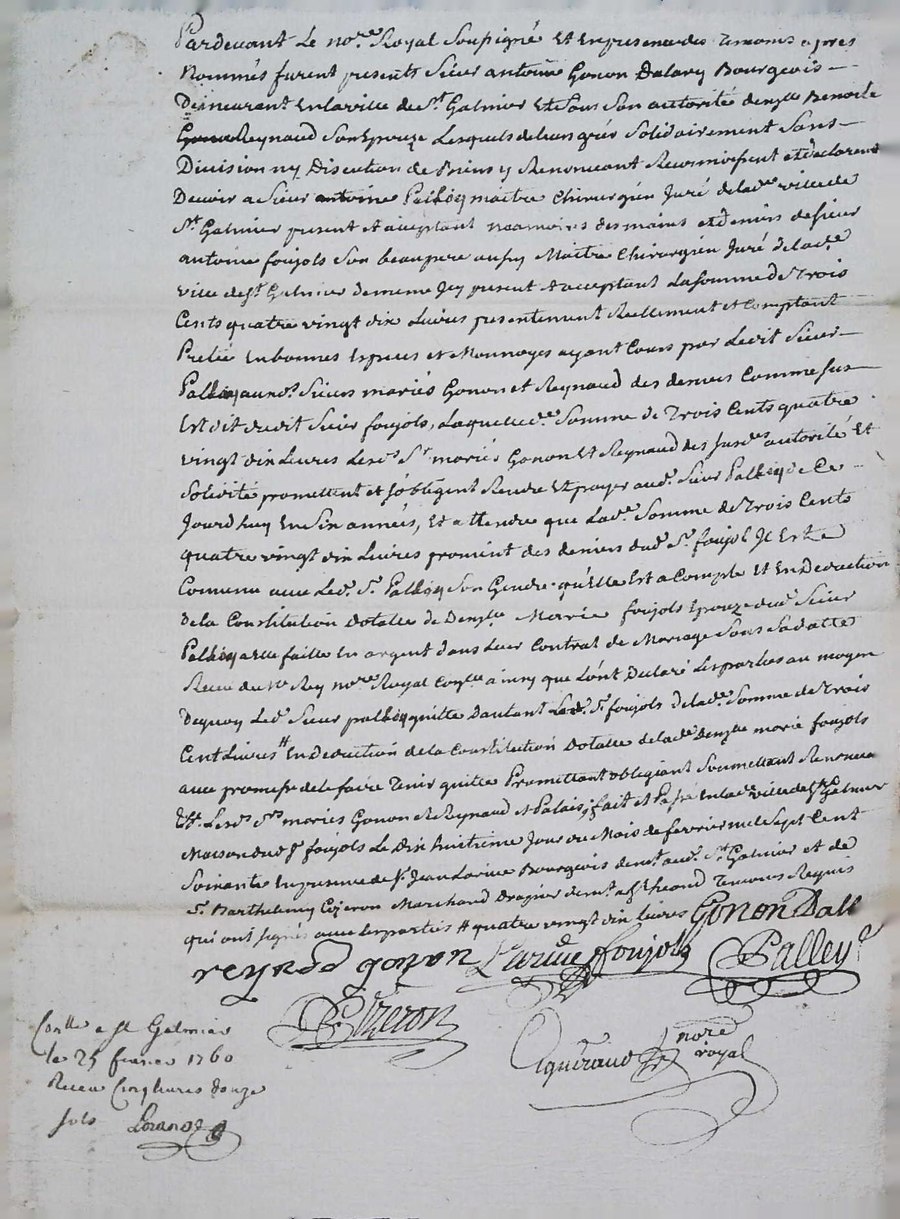 Pardevant Le no.re Royal Soussigné Et En presence des Temoins apres
Nommés furent presents Sieur antoine Gonon Dalary Bourgeois
Demeurant En la ville de St. Galmier Et Sous Son autorité demlle Benoite
Reynaud Son Epouze Lesquels de leur grés Solidairement Sans
Division ny Discution de Biens y Renoncant Reconnoissent et declarent
Devoir a Sieur antoine Palley maitre Chirurgien Juré de lad.e ville de
St. Galmier present et acceptant neanmoires des mains et deniers de Sieur
antoine foujols Son beaupere aussy Maitre Chirurgien Juré de lad.e
ville de St. Galmier de meme Icy present et acceptant La somme de Trois
Cents quatre vingt dix Livres presentement Reellement et Comptant
Pretée En bonnes Especes et Monnoyes ayant Cours par Ledit Sieur
Palley auxd. Sieurs mariés Gonon et Reynaud des deniers Comme Sus
Est dit dudit Sieur foujols, Laquelle d.e Somme de Trois Cents quatre
vingt dix Livres Lesd. Srs mariés Gonon Et Reynaud des Susd.es autorité Et
Solidité promettent et s'obligent Rendre Et payer aud. Sieur Palley de Ce
Jourdhuy En Six années, Et attendre que Lad.e Somme de Trois Cents
quatre vingt dix Livres provient des deniers dud. Sr. foujol Il Est
Convenu avec Led. Sr. Palley Son Gendre qu'Elle Est a Compte Et En Deduction
de la Constitution Dotalle de Demlle Marie foujols Epouze dud. Sieur
Palley a Elle faitte En argent dans Leur Contrat de Mariage Sous Sa datte
Receu du Me Rey no.re Royal ainsy que L'ont Declaré Les parties au moyen
Dequoy Led. Sieur palley quitte D'autant Led. Sr. foujols de lad.e Somme de Trois
Cent Livres # En Deduction de la Constitution Dotalle de lad.e Demlle marie foujols
avec promesse de le faire Tenir quitte Promettant obligeant Soumettant Renoncant
Lesd. Srs mariés Gonon et Reynaud et Palais; fait et Passé En lad.e ville de St. Galmier
Maison dud. Sr. foujols Le Dix huitieme Jour du Mois de fevrier mil Sept Cent
Soixante En presence de Sr. Jean Larive Bourgeois demt. aud. St. Galmier et de
Sr. Barthelemy Cizeron Marchand Drapier demt. Temoins Requis
qui ont signés avec les parties # quatre vingt dix livres Gonon Dall
reynod gonon Larive foujols Palley
Cizeron
nore
royal
Conlle a St Galmier
le 25 fevrier 1760
Receu Cinq livres douze
sols